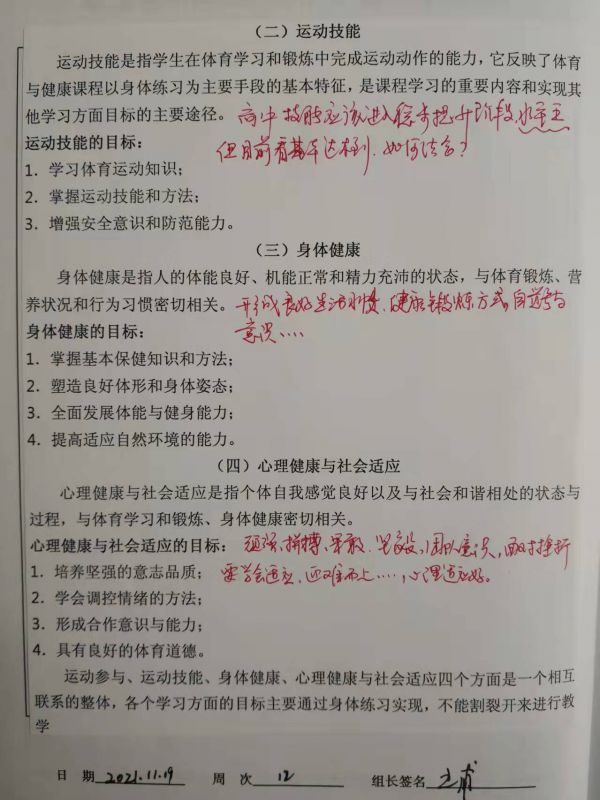 （二）运动技能
运动技能是指学生在体育学习和锻炼中完成运动动作的能力，它反映了体育
与健康课程以身体练习为主要手段的基本特征，是课程学习的重要内容和实现其
他学习方面目标的主要途径。高中技能应该进入稳步提升阶段，
运动技能的目标：
但目前看基本达不到，如何结合？
1. 学习体育运动知识；
2. 掌握运动技能和方法；
3. 增强安全意识和防范能力。
（三）身体健康
身体健康是指人的体能良好、机能正常和精力充沛的状态，与体育锻炼、营
养状况和行为习惯密切相关。形成良好生活习惯、健康锻炼方式，自觉
身体健康的目标：
意识....
1. 掌握基本保健知识和方法；
2. 塑造良好体形和身体姿态；
3. 全面发展体能与健身能力；
4. 提高适应自然环境的能力。
（四）心理健康与社会适应
心理健康与社会适应是指个体自我感觉良好以及与社会和谐相处的状态与
过程，与体育学习和锻炼、身体健康密切相关。
心理健康与社会适应的目标：顽强、拼搏、果敢、坚毅，团队意识，面对挫折
1. 培养坚强的意志品质；要学会适应，迎难而上....，心理适应好。
2. 学会调控情绪的方法；
3. 形成合作意识与能力；
4. 具有良好的体育道德。
运动参与、运动技能、身体健康、心理健康与社会适应四个方面是一个相互
联系的整体，各个学习方面的目标主要通过身体练习实现，不能割裂开来进行教
学
日 期 2021.11.19 周 次 12 组长签名